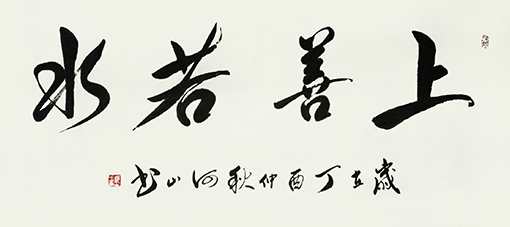 上善若水
歲在丁酉仲秋河山書